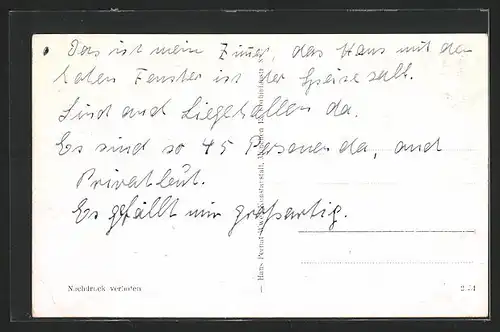 Das ist mein Zimmer, das Haus mit den
hohen Fenster ist der Speisesall.
Sind auch Liegehallen da.
Es sind so 45 Personen da, auch
Privatleut.
Es gefällt mir großartig.
Nachdruck verboten
2.54